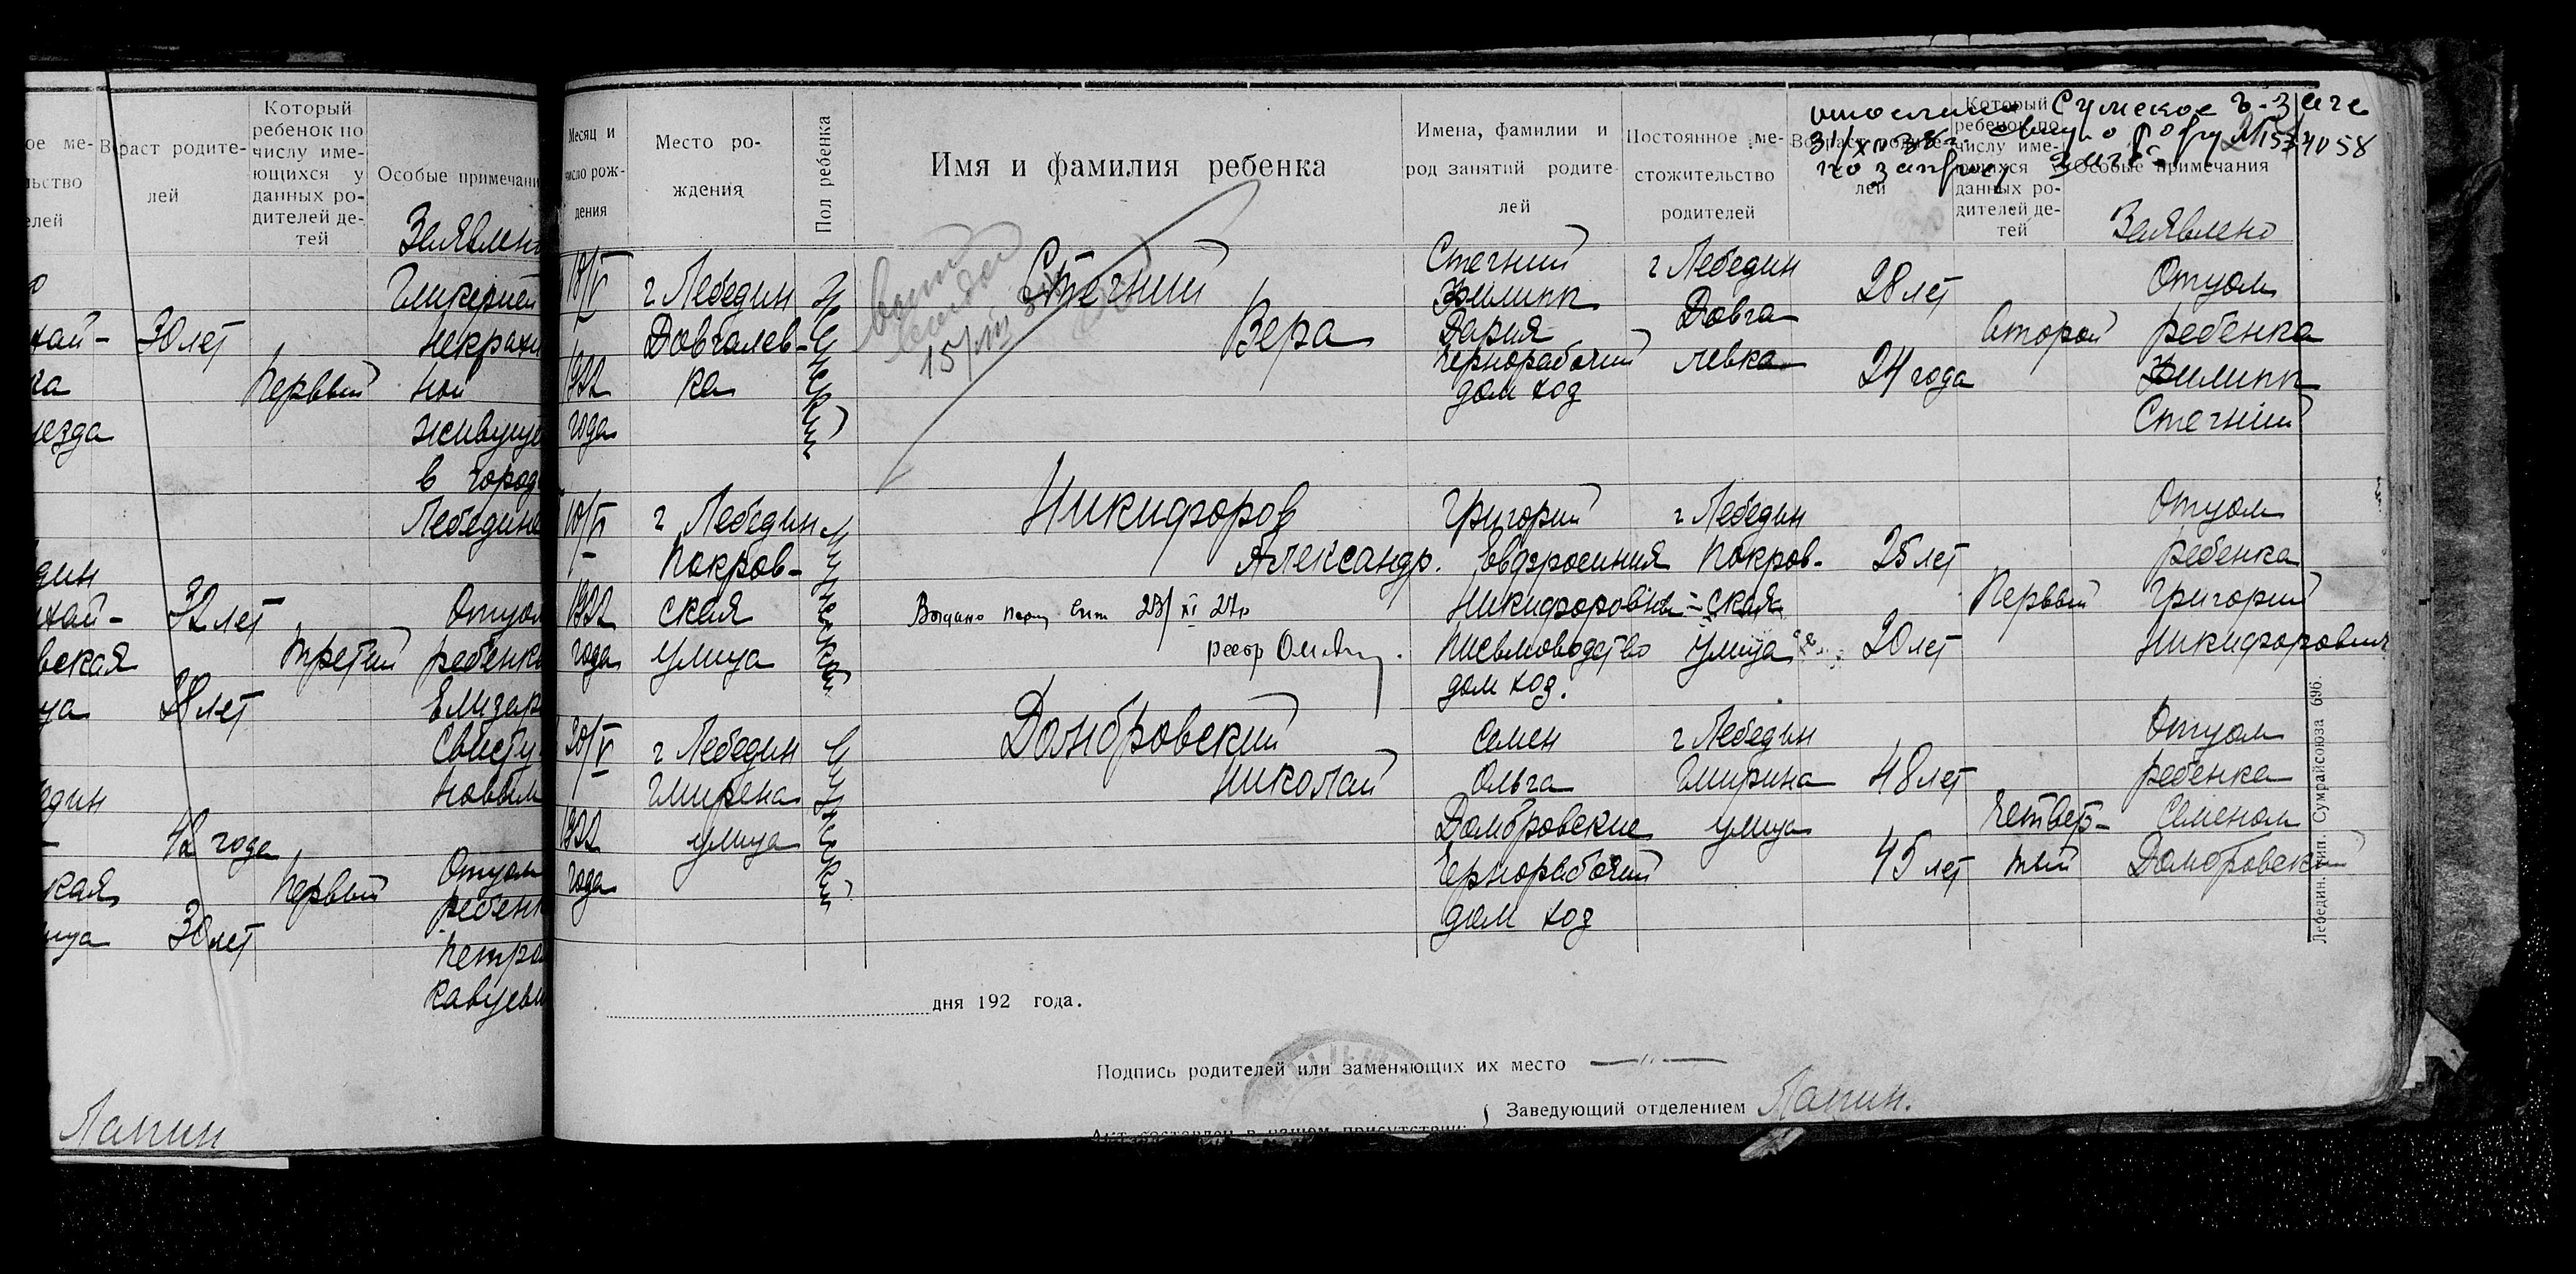 ое ме-
ьство
елей
Возраст родите-
лей
Который
ребенок по
числу име-
ющихся у
данных ро-
дителей де-
тей
Особые примечани
Заявлено
Гликерией
некрахи
ной
живуще
в город
Лебедине
хай-
ка
уезда
30 лет
первый
дин
хай-
вская
ца
32 лет
28 лет
третий
Отцом
ребенка
Елизар
Свисту-
новым
един
кая
ица
42 года
30 лет
первый
Отцом
ребенк
Петром
Кавуевы
Лапин
Месяц и
число рож-
дения
Место ро-
ждения
Пол ребенка
Имя и фамилия ребенка
Имена, фамилии и
род занятий родите-
лей
Постоянное ме-
стожительство
родителей
Возраст родите-
лей
Который
ребенок по
числу име-
ющихся у
данных ро-
дителей де-
тей
Особые примечания
Сумское
31/XII 38
по запросу
Заявлено
18/V
1922
года
г Лебедин
Довгалев-
ка
Женский
15/VIII
Стегний
Вера
Стегний
Филипп
Дария
чернорабочий
дом хоз
г Лебедин
Довга
левка
28 лет
24 года
второй
Отцом
ребенка
Филипп
Стегний
10/V
1922
года
г Лебедин
Покров-
ская
улица
Мужеский
Никифоров
Александр.
Выдано
реестр
Григорий
Евфросиния
Никифоровы
письмоводство
дом хоз.
г Лебедин
Покров-
ская
улица
25 лет
20 лет
Первый
Отцом
ребенка
Григорий
Никифорович
30/V
1922
года
г Лебедин
Гмирена
улица
Мужеский
Домбровский
Николай
Семен
Ольга
Домбровские
Чернорабочий
дом хоз
г Лебедин
Гмирина
улица
48 лет
45 лет
четвер-
тый
Отцом
ребенка
Семеном
Домбровский
Лебедин. тип. Сумрайсоюза 696.
дня 192 года.
Подпись родителей или заменяющих их место —"—
Заведующий отделением Лапин.
Акт составлен в нашем присутствии: